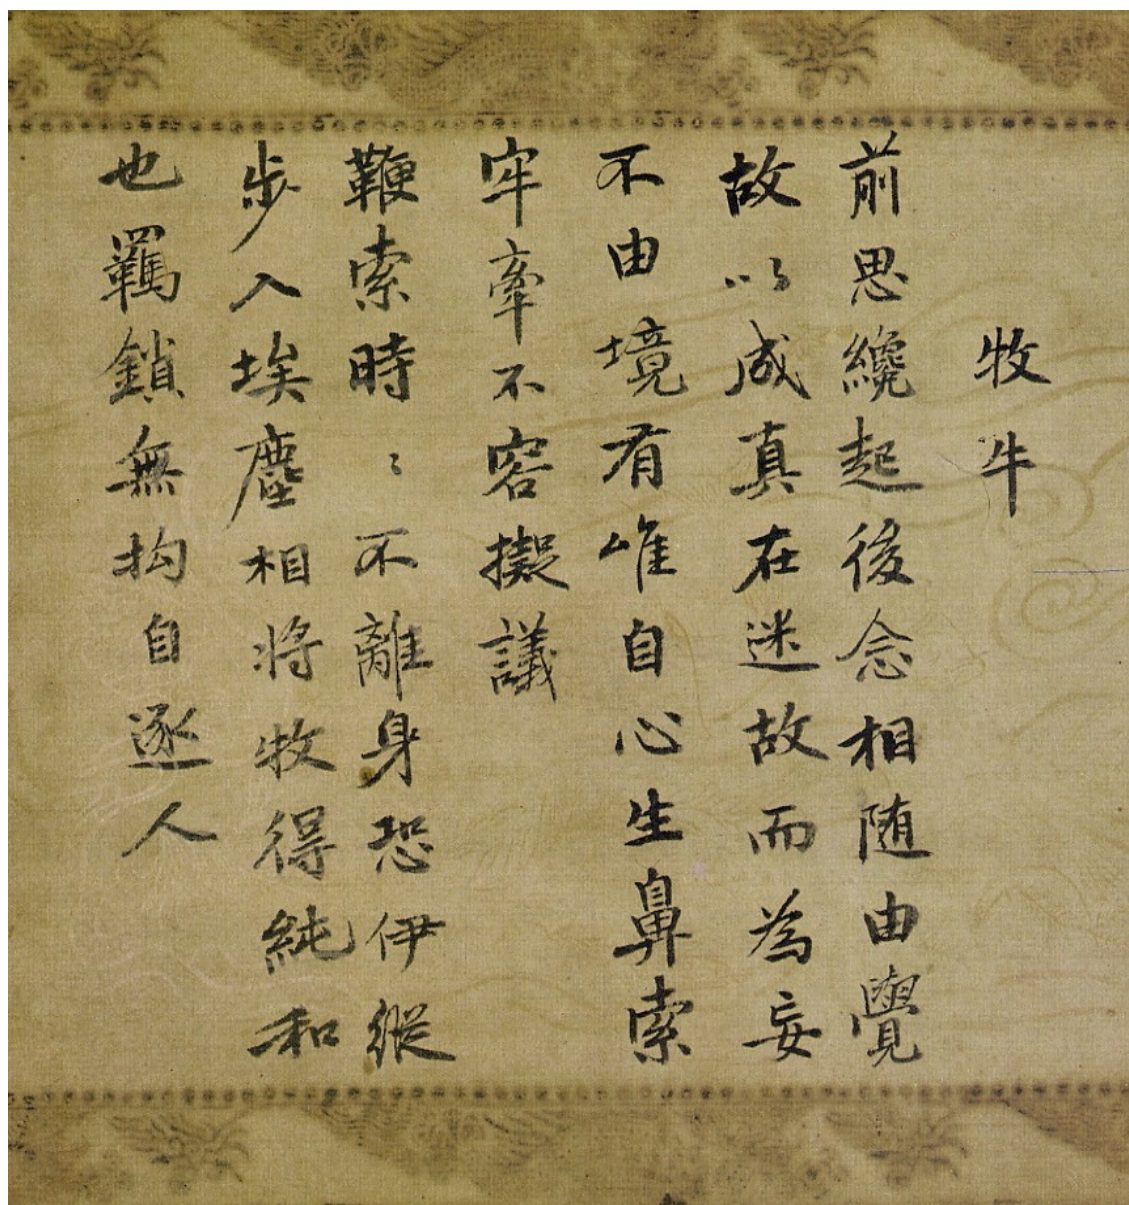 牧牛
前思纔起後念相随由覺
故以成真在迷故而為妄
不由境有唯自心生鼻索
牢牽不容擬議
鞭索時〻不離身恐伊縱
步入埃塵相將牧得純和
也羈鎖無拘自逐人